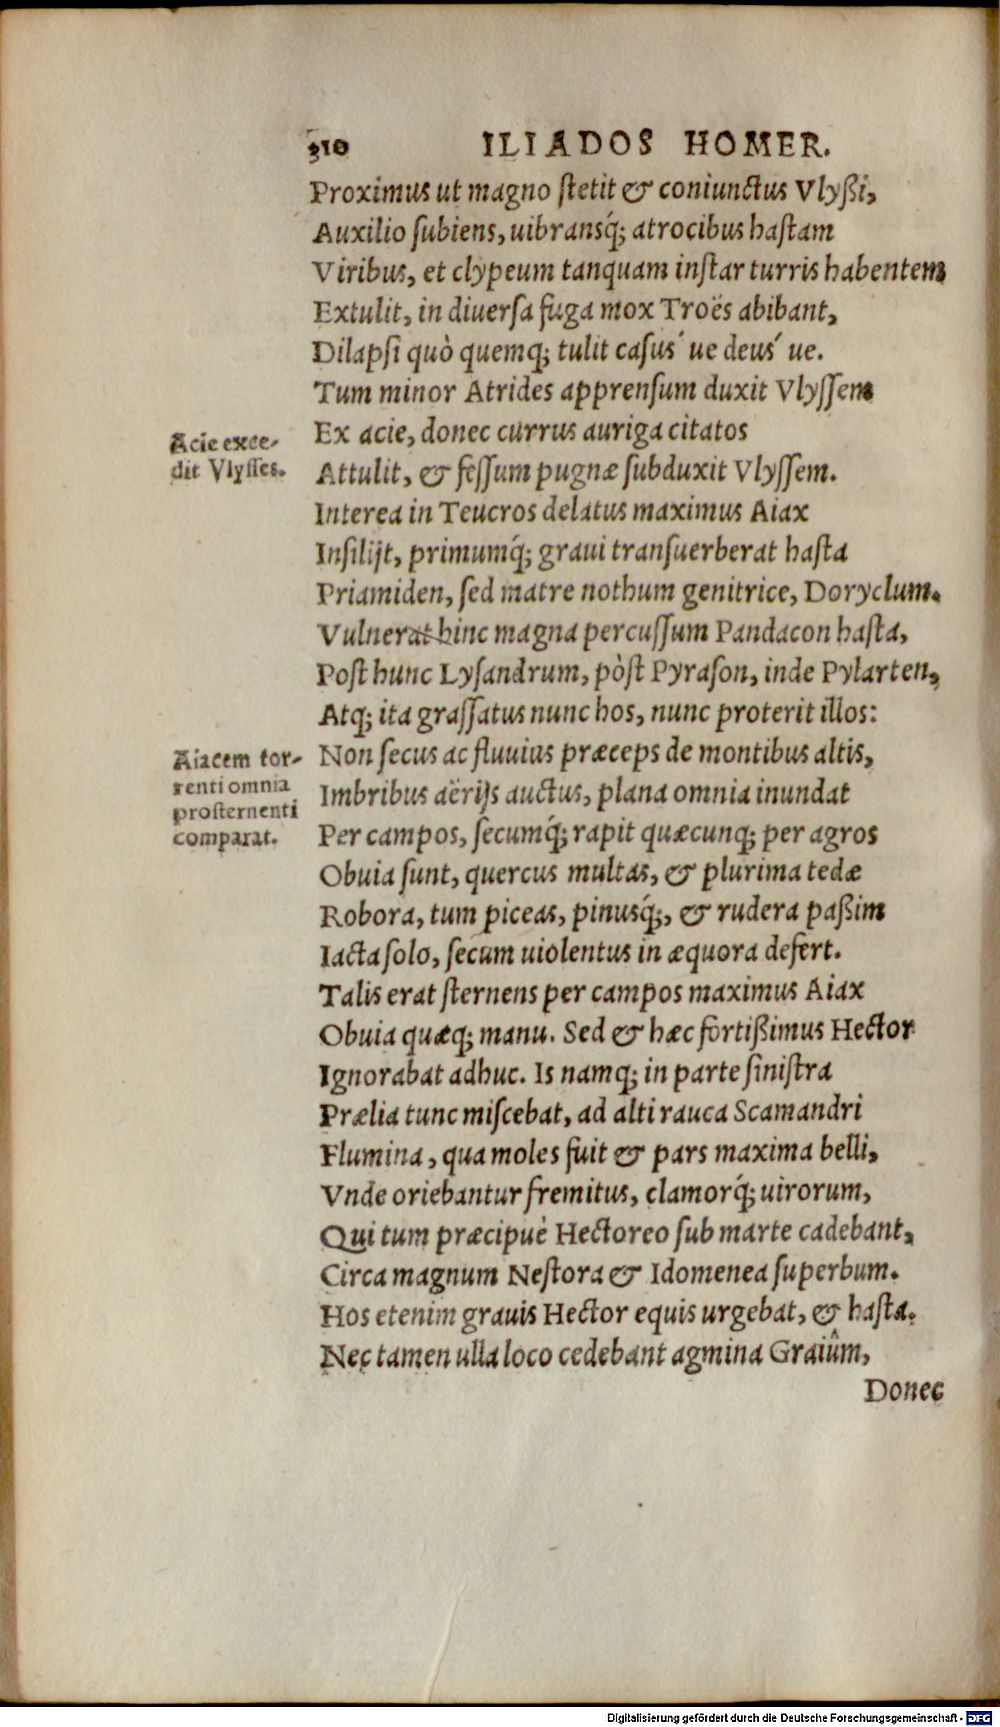 310 ILIADOS HOMER.
Proximus ut magno ſtetit & coniunctus Vlyßi,
Auxilio ſubiens, uibransq́; atrocibus haſtam
Viribus, et clypeum tanquam inſtar turris habentem
Extulit, in diuerſa fuga mox Troës abibant,
Dilapſi quò quemq; tulit caſus ́ue deus ́ue.
Tum minor Atrides apprenſum duxit Vlyſſem
Acie exce-
dit Vlyſſes.
Ex acie, donec currus auriga citatos
Attulit, & feſſum pugnæ ſubduxit Vlyſſem.
Interea in Teucros delatus maximus Aiax
Inſilijt, primumq́; graui transuerberat haſta
Priamiden, ſed matre nothum genitrice, Doryclum.
Vulnerat hinc magna percuſſum Pandacon haſta,
Poſt hunc Lyſandrum, pòſt Pyraſon, inde Pylarten,
Atq; ita graſſatus nunc hos, nunc proterit illos:
Aiacem tor-
renti omnia
proſternenti
comparat.
Non ſecus ac fluuius præceps de montibus altis,
Imbribus aërijs auctus, plana omnia inundat
Per campos, ſecumq́; rapit quæcunq; per agros
Obuia ſunt, quercus multas, & plurima tedæ
Robora, tum piceas, pinusq́;, & rudera paßim
Iacta ſolo, ſecum uiolentus in æquora defert.
Talis erat ſternens per campos maximus Aiax
Obuia quæq; manu. Sed & hæc fortißimus Hector
Ignorabat adhuc. Is namq; in parte ſiniſtra
Prælia tunc miſcebat, ad alti rauca Scamandri
Flumina, qua moles fuit & pars maxima belli,
Vnde oriebantur fremitus, clamorq́; uirorum,
Qui tum præcipuè Hectoreo ſub marte cadebant,
Circa magnum Neſtora & Idomenea ſuperbum.
Hos etenim grauis Hector equis urgebat, & haſta.
Nec tamen ulla loco cedebant agmina Graiûm,
Donec
Digitalisierung gefördert durch die Deutsche Forschungsgemeinschaft - DFG